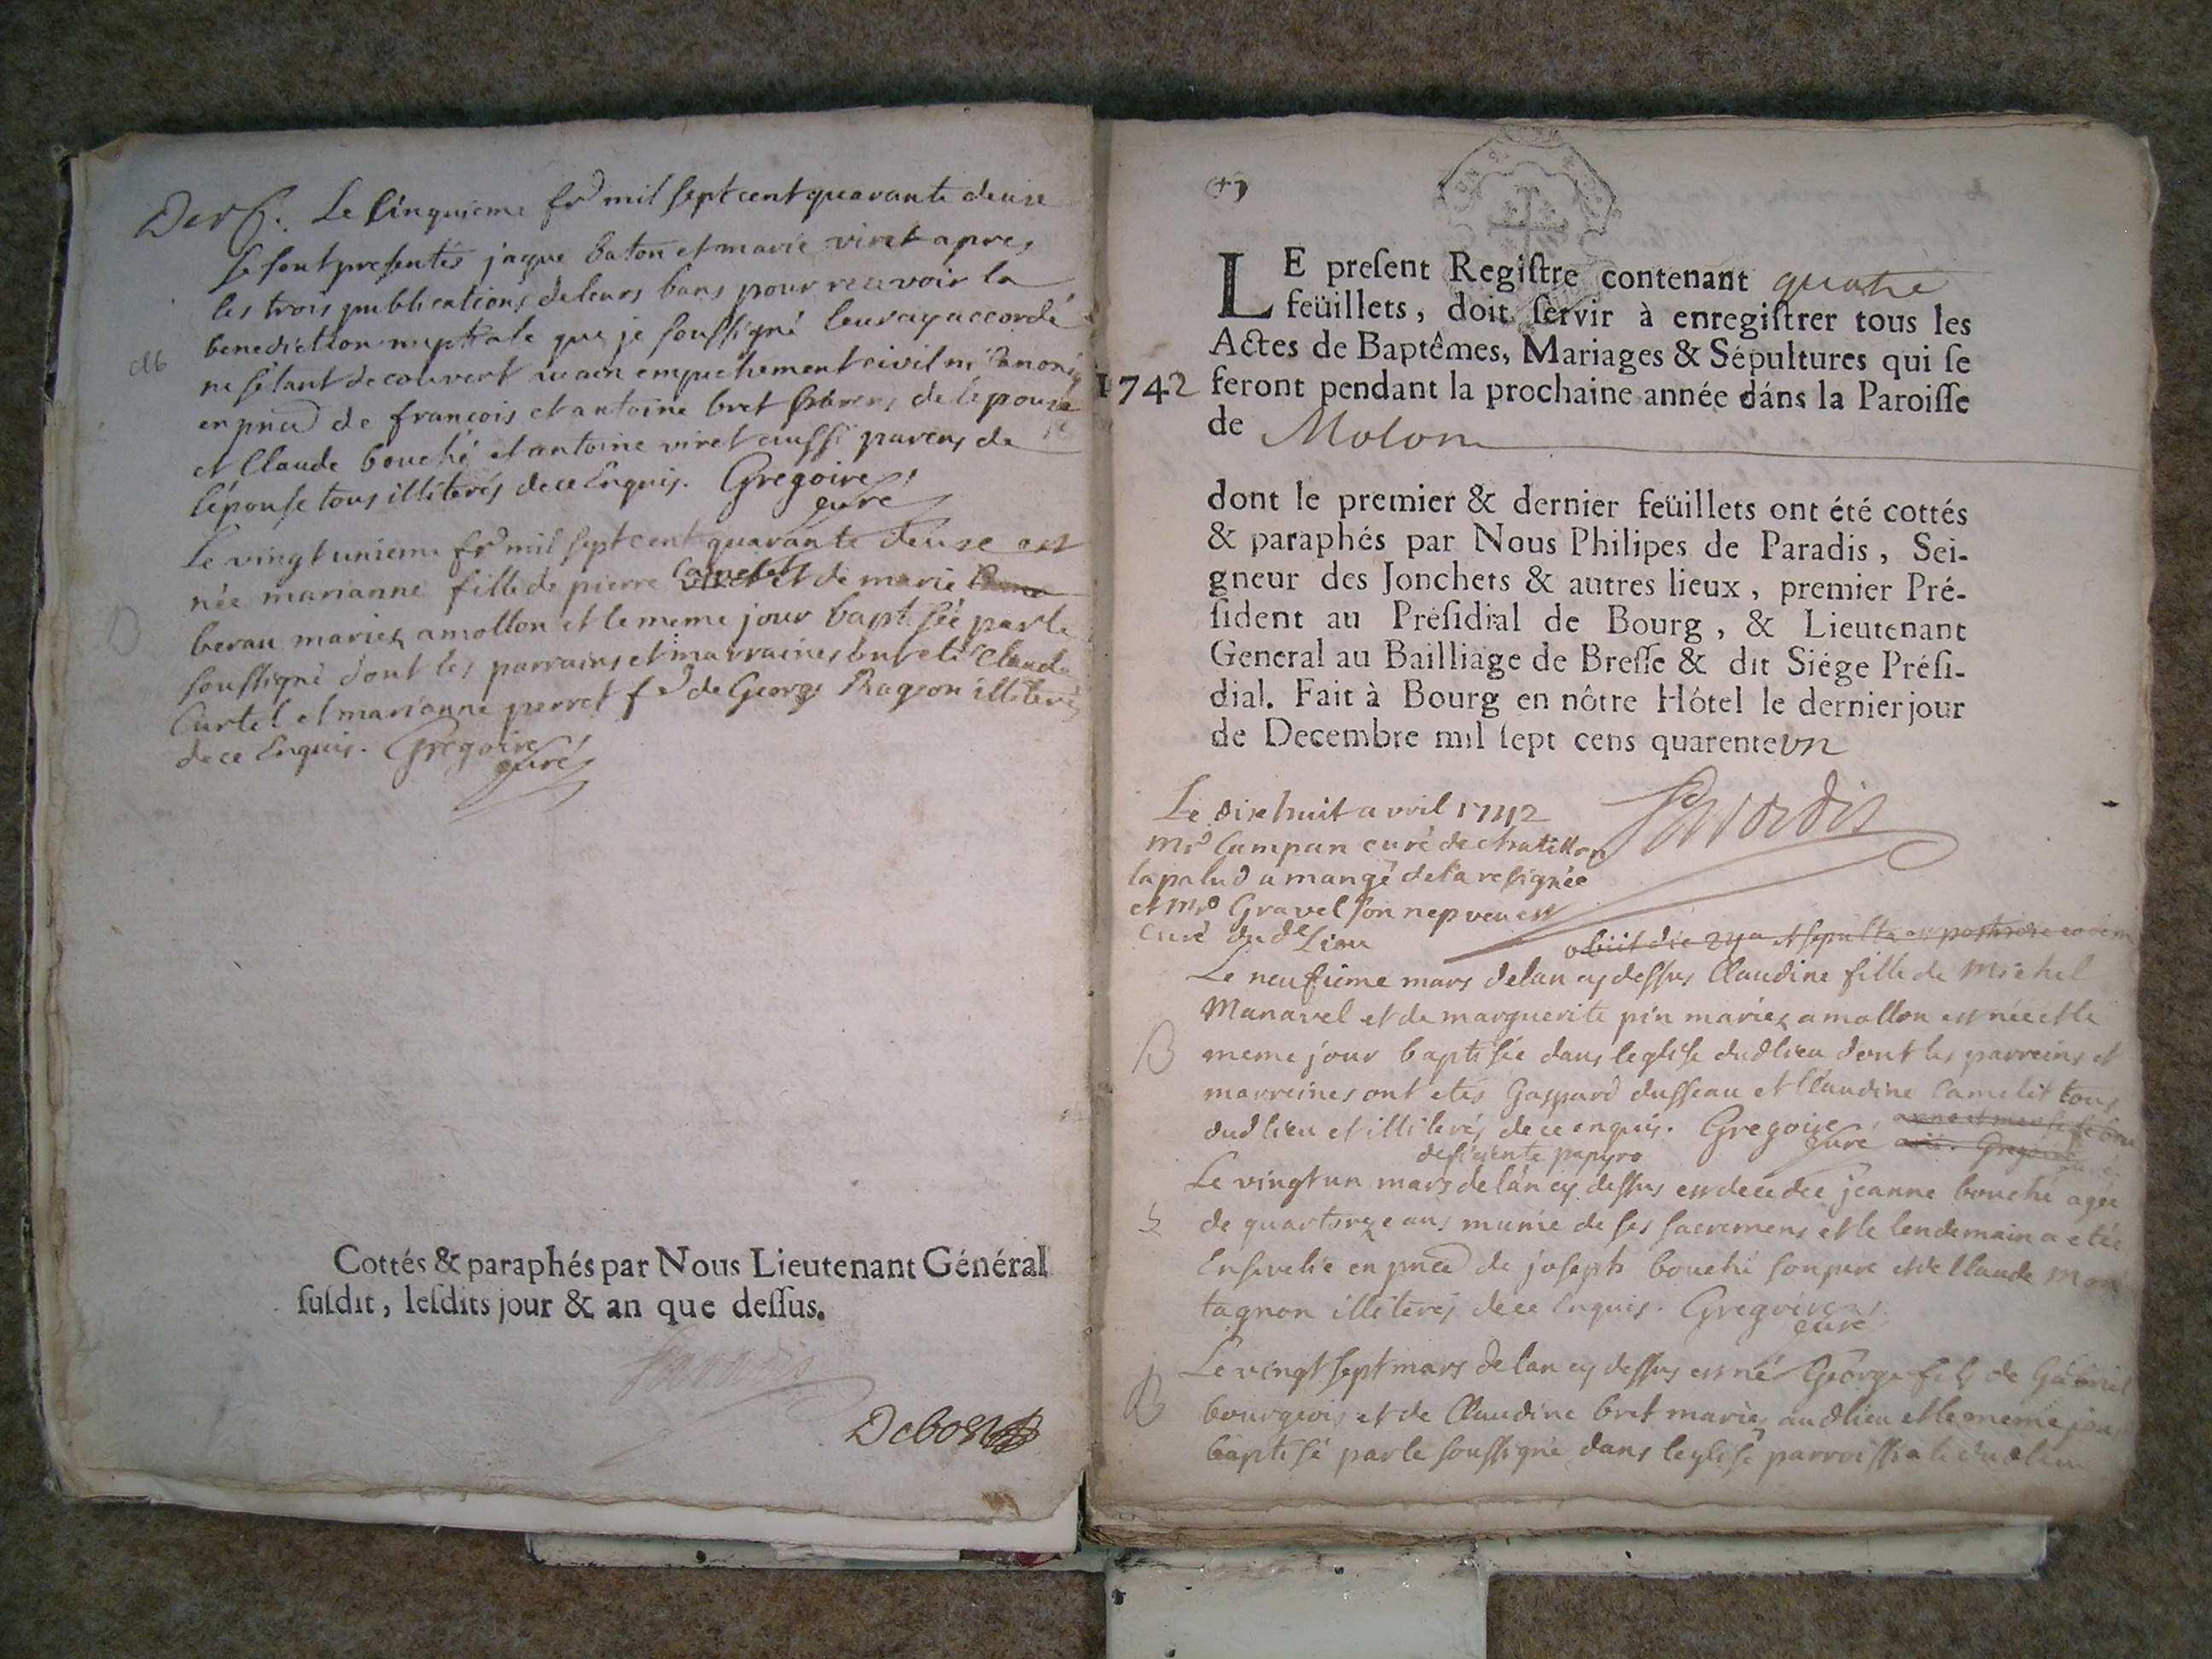 Le Cinquieme fr mil sept cent quarante deuse
se sont presentés jaque baton et marie viret apres
les trois publications de leurs bans pour recevoir la
benediction nuptiale que je soussigné leur ay accordé
ne s'etant decouvert aucun empechement civil ni Canoni
en pnce de francois et antoine bret freres de lepouse
et Claude bouché et antoine viret aussi parens de
l'épouse tous illiterés de ce Enquis. Gregoire
curé
Le vingt unieme fr mil sept cent quarante deuse est
née marianne fille de pierre et de marie
berau mariez a mollon et le meme jour baptisée par le
soussigné dont les parrains et marraines ont eté Claude
Curtel et marianne perret f de George Ragson illiterés
de ce Enquis. Gregoire
curé
Cottés & paraphés par Nous Lieutenant Général
susdit, lesdits jour & an que dessus.
Debost
LE present Registre contenant quatre
feüillets, doit servir à enregistrer tous les
Actes de Baptêmes, Mariages & Sépultures qui se
1742 feront pendant la prochaine année dáns la Paroisse
de Molon
dont le premier & dernier feüillets ont été cottés
& paraphés par Nous Philipes de Paradis, Sei-
gneur des Jonchets & autres lieux, premier Pré-
sident au Présidial de Bourg, & Lieutenant
General au Bailliage de Bresse & dit Siége Prési-
dial. Fait à Bourg en nôtre Hôtel le dernier jour
de Decembre mil sept cens quarente un
Paradis
Le dixhuit avril 1742
mre Campan curé de chatillon
lapalud a mangé de la resignée
et mre Gravel son nepveu est
curé dud Lieu
obiit die 24a et sepulta est
Le neufieme mars de lan cy dessus Claudine fille de Michel
Manavel et de marguerite pin mariez a mollon est née et le
B meme jour baptisée dans leglise dud lieu dont les parreins et
marreines ont etés Gaspard dusseau et Claudine Camelet tous
dud lieu et illiterés de ce enquis. Gregoire
curé
deficiente papyro
Le vingt un mars de lan cy dessus est decedée jeanne bouché agée
S de quartorze ans munie de ses sacremens et le lendemain a etée
Ensevelie en pnce de joseph bouché son pere et de Claude Mon
tagnon illiterés de ce Enquis. Gregoire
curé
Le vingt sept mars de lan cy dessus est né George fils de Gabriel
B bourgeois et de Claudine bret mariez aud lieu et le meme jour
baptisé par le soussigné dans leglise parroissiale dud lieu